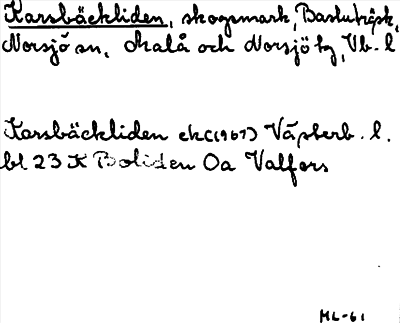 Karsbäckliden, skogsmark, Bastuträsk,
Norsjö sn, Malå och Norsjö tg, Vb. l
Karsbäckliden ek (1967) Västerb. l.
bl 23 K Boliden Oa Valfors
ML-61